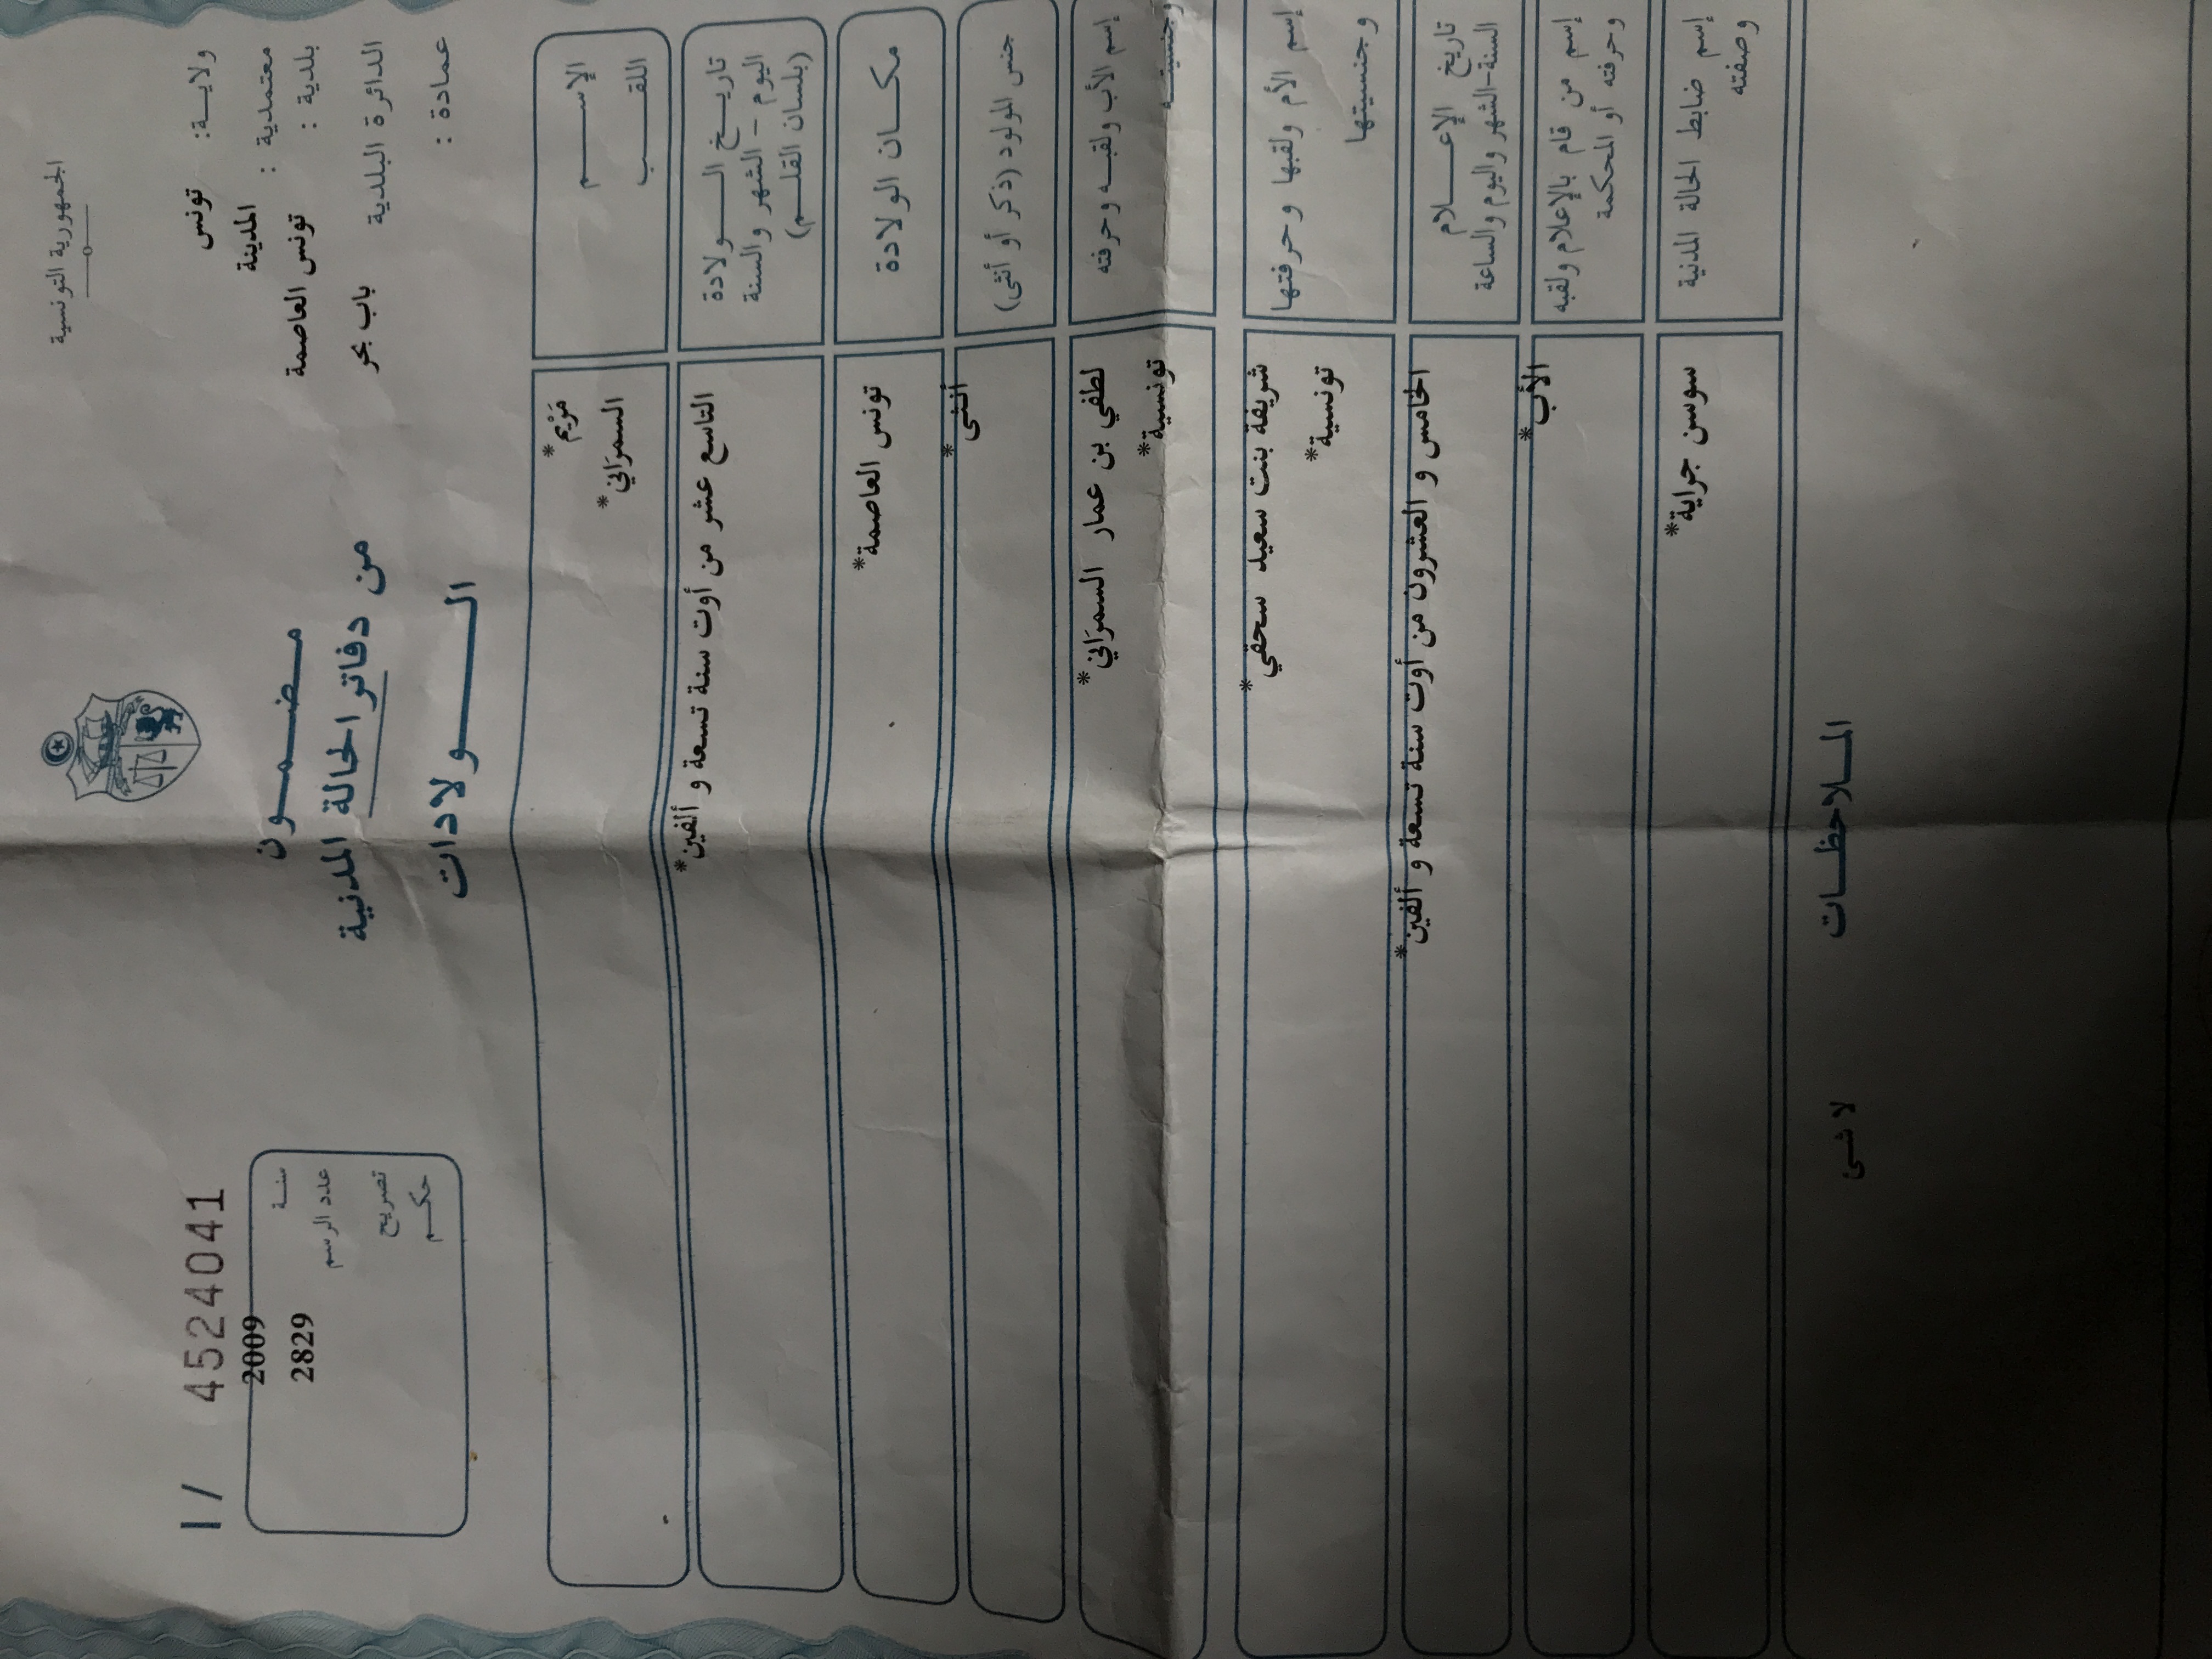 الجمهورية التونسية
ولايـــة: تونس
معتمدية : المدينة
بلدية : تونس العاصمة
الدائرة البلدية باب بحر
عمادة :
مـضـمـــون
من دفاتر الحالة المدنية
الـــولادات
I / 4524041
سنـة 2009
عدد الرسم 2829
تصريح
حكـم
الإســـم مَرْيم*
اللقـــب السمرَاني*
تاريــخ الـــولادة
اليوم - الشهر والسنة
(بلسان القلـــم)
التاسع عشر من أوت سنة تسعة و ألفين*
مكـــان الولادة تونس العاصمة*
جنس المولود (ذكر أو أنثى) أنثى*
إسم الأب ولقبـه وحرفته
وجنسيتـــه
لطفي بن عمار السمرَاني*
تونسية*
إسم الأم ولقبها وحرفتها
وجنسيتها
شريفة بنت سعيد سحقي*
تونسية*
تاريخ الإعـــلام
السنة-الشهر واليوم والساعة
الخامس و العشرون من أوت سنة تسعة و ألفين*
إسم من قام بالإعلام ولقبه
وحرفته أو المحكمة
الأب*
إسم ضابط الحالة المدنية
وصفته
سوسن جراية*
المـــلاحظـــات
لا شئ